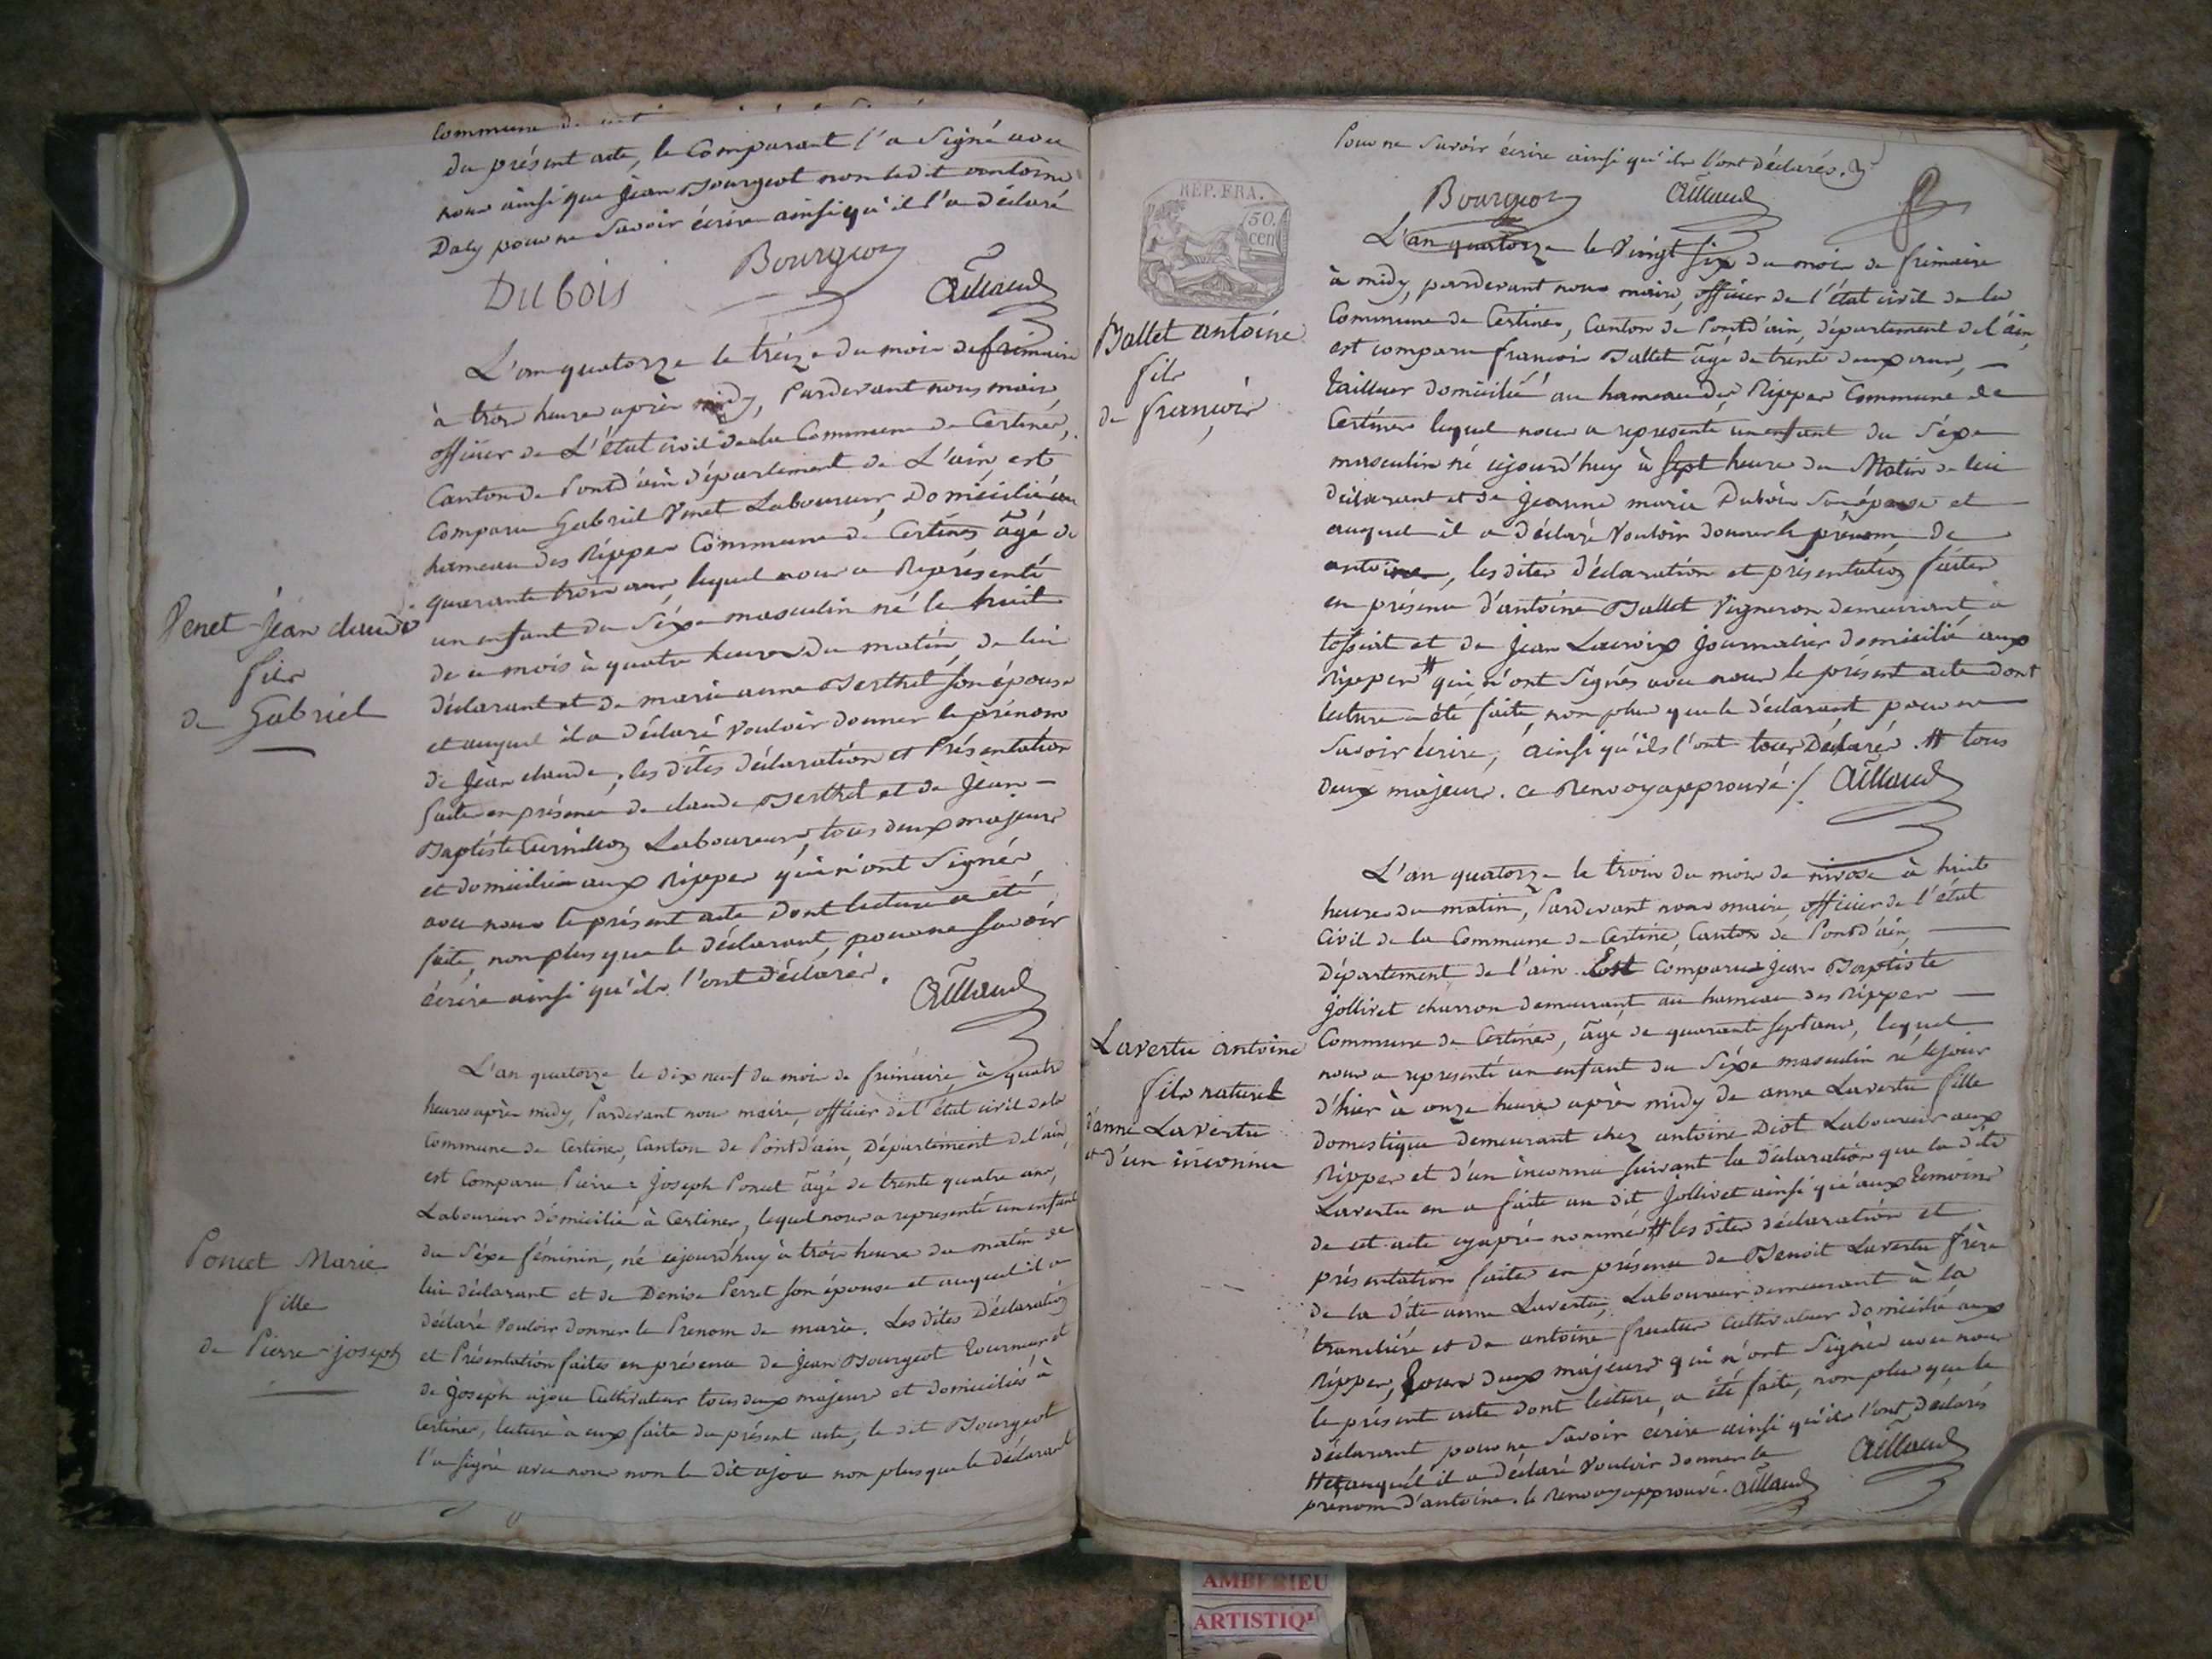 Commune de
du présent acte, le Comparant l'a Signé avec
nous ainsi que Jean Bourgeot non le dit antoine
Daly pour ne Savoir écrire ainsi qu'il l'a déclaré
Dubois
Bourgeoz
Aillaud
L'an quatorze le treize du mois de frimaire
à trois heures après midy, Pardevant nous maire
officier de L'état civil de la Commune de Certines,
Canton de Pontd'ain département de L'ain, est
Comparu Gabriel Venet Laboureur, Domicilié au
hameau des Rippes Commune de Certines âgé de
quarante trois ans, lequel nous a Représenté
un enfant du Séxe masculin né le huit
de ce mois à quatre heures du matin de lui
déclarant et de marie anne Berthet son épouse
et auquel il a déclaré Vouloir donner le prénom
de Jean claude, les dites déclaration et Présentation
faite en présence de claude Berthet et de Jean
Baptiste Laboureurs, tous deux majeurs
et domiciliés aux Rippes qui n'ont Signés
avec nous le présent acte Dont lecture a été
faite, non plus que le déclarant, pour ne Savoir
écrire ainsi qu'ils l'ont déclarés.
Aillaud
Venet Jean claude
fils
de Gabriel
L'an quatorze le dix neuf du mois de frimaire, à quatre
heures après midy, Pardevant nous maire, officier de l'état civil de la
Commune de Certines, Canton de Pontd'ain, Département de l'ain,
est Comparu Pierre = Joseph Poncet âgé de trente quatre ans,
Laboureur domicilié à Certines, lequel nous a représenté un enfant
du Séxe féminin, né cejourd'huy à trois heures du matin de
lui déclarant et de Denise Perret son épouse et auquel il a
déclaré Vouloir donner le Prenom de marie. Les dites Déclaration
et Présentation faites en présence de Jean Bourgeot Tourneur et
de Joseph ajou Cultivateur tous deux majeurs et domiciliés à
Certines, lecture à eux faite du présent acte, le dit Bourgeot
l'a signé avec nous non le dit ajou non plus que le déclarant
Poncet Marie
fille
de Pierre-joseph
Pour ne Savoir écrire ainsi qu'ils l'ont déclarés.
Bourgeoz
Aillaud
REP. FRA.
50.
cen
L'an quatorze le Vingt Six du mois de frimaire
à midy, pardevant nous maire, officier de l'état civil de la
Commune de Certines, Canton de Pontd'ain, département de l'ain,
est comparu françois Ballet âgé de trente deux ans,
tailleur domicilié au hameau des Rippes Commune de
Certines lequel nous a représenté un enfant du Séxe
masculin né cejourd'huy à Sept heures du Matin de lui
déclarant et de jeanne marie Dubois son épouse et
auquel il a déclaré Vouloir donner le prénom de
antoine, les dites déclaration et présentation faites
en présence d'antoine Ballet Vigneron demeurant a
tossiat et de Jean Lacroix Journalier domicilié aux
Rippes # qui n'ont Signés avec nous le présent acte dont
lecture a été faite, non plus que le déclarant pour ne
Savoir écrire, ainsi qu'ils l'ont tous Déclaré. # tous
deux majeurs. ce Renvoy approuvé./. Aillaud
Ballet antoine
fils
de françois
L'an quatorze le trois du mois de nivose à huit
heures du matin, Pardevant nous maire officier de l'état
civil de la Commune de Certines, Canton de Pontd'ain,
Département de l'ain. Est comparu Jean Baptiste
Jollivet charron demeurant au hameau des Rippes
Commune de Certines, âgé de quarante sept ans, lequel
nous a représenté un enfant du Séxe masculin né le jour
d'hier à onze heures après midy de anne Lavertu fille
domestique demeurant chez antoine Diot Laboureur aux
Rippes et d'un inconnu suivant la déclaration que la dite
Lavertu en a faite au dit Jollivet ainsi qu'aux temoins
de cet acte cyaprès nommés # les dites déclaration et
présentation faites en présence de Benoit Lavertu frère
de la dite anne Lavertu, Laboureur demeurant à la
trancliére et de antoine cultivateur domicilié aux
Rippes, tous deux majeurs qui n'ont Signés avec nous
le présent acte dont lecture a été faite, non plus que le
déclarant pour ne Savoir écrire ainsi qu'ils l'ont déclarés
# et auquel il a déclaré Vouloir donner le
prénom d'antoine. le Renvoy approuvé. Aillaud
Aillaud
Lavertu antoine
fils naturel
d'anne Lavertu
et d'un inconnu
AMBERIEU
ARTISTIQ